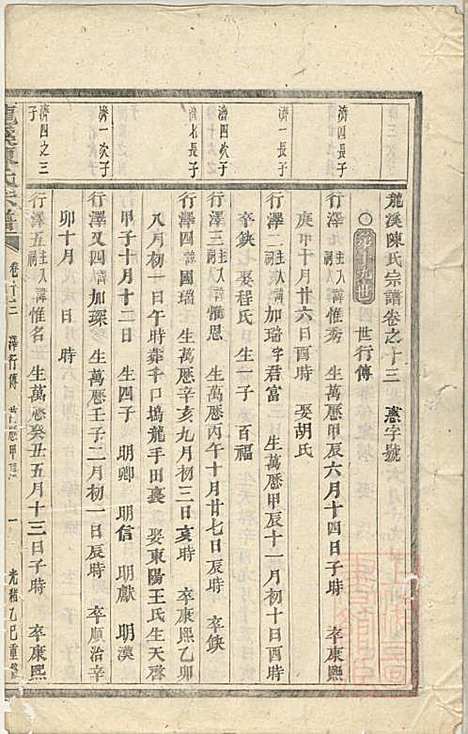 龍溪陳氏宗譜卷之十三 憲字號
世行傳
濟四長子
行澤一 主入祠 諱惟秀 生萬曆甲辰六月十四日子時 卒康熙
庚申十月廿六日酉時 娶胡氏
濟一長子
行澤二 主入祠 諱加瑞字君富 生萬曆甲辰十一月初十日酉時
卒缺 娶程氏 生一子 百福
濟四次子
行澤三 主入祠 諱惟恩 生萬曆丙午十月廿七日辰時 卒缺
濟七長子
行澤四 諱國瑞 生萬曆辛亥九月初三日亥時 卒康熙乙卯
八月初一日午時葬千口塢龍手田裏 娶東陽王氏生天啓
甲子十月十二日 生四子 明卿 明信 明獻 明漢
濟一次子
行澤又四 諱加琛 生萬曆壬子二月初一日辰時 卒順治辛
卯十月 日 時
濟四之三子
行澤五 主入祠 諱惟名 生萬曆癸丑五月十三日子時 卒康熙
龍溪陳氏宗譜 卷十三 澤行傳 一 光緒乙巳重修